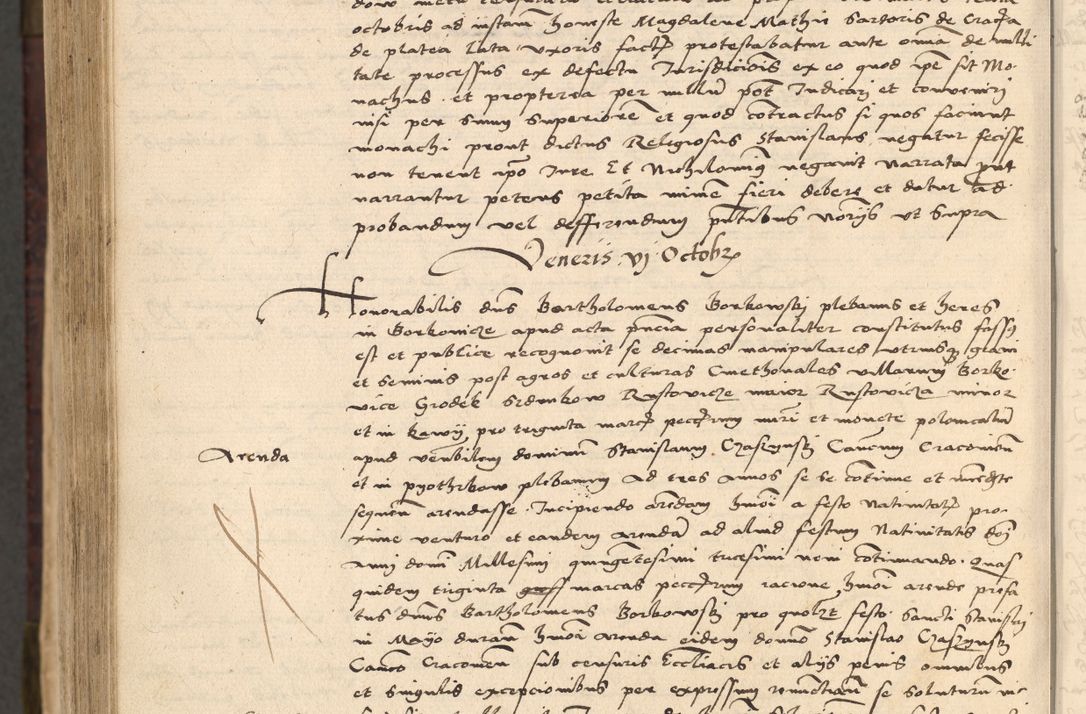 octobris ad instam honeste Magdalene Mathie Sartoris de Craco
de platea lata uxoris fact protestabatur ante omia de nulli
tate processus ex defectu Jurisdicionis ex eo quod ipse sit Mo
nachus et propterea per nullum pot Iudicari et conveniri
nisi per suum Superiorem et quod cotractus si quos faciunt
monachi prout dictus Religiosus Stanislaus negatur fecisse
non tenent ipo Jure Et Nichilominus negavit narrata prout
narrantur petens petita minime fieri debere et datur ad
probandum vel defferendum pntibus notariis ut supra
Veneris vj Octobr
Honorabilis dns Bartholomeus Borkowskj plebanus et heres
in Borkovicze apud acta pntia personaliter constitutus fassus
est et publice recognovit se decimas manipulares utriusq grani
et seminis post agros et culturas Cmethonales villarum Borko
vice Grodek Srdunkow Rustovicze maior Rustovicza minor
et in Kawij pro triginta marc pecc̃ium nuri et monete polonicaliũ
Arenda
apud venbilem dominum Stanislaum Czaszynskj Canoum Cracovien
et in pyothrkow plebanum ad tres annos se se cotinue et immediate
sequen arendasse Incipiendo arendam hmoi a festo Nativitatis pro
xime venturo et eandem arendam ad aliud festum Nativitatis doi
Anni domi Millesimi quingetesimi tricesimi noni cotinuando Quas
quidem triginta marcas peccuniarum racione hmoi arende prefa
tus dnus Bartholomeus Borkowskj pro quolzt festo Sancti Stanislai
in Mayo duran hmoi arenda eidem domno Stanislao Czaszynskj
Canoco Cracovien sub censuris Ecclijacis et alijs penis omnibus
et singulis excepcionibus per expressum renunctiam se soluturum